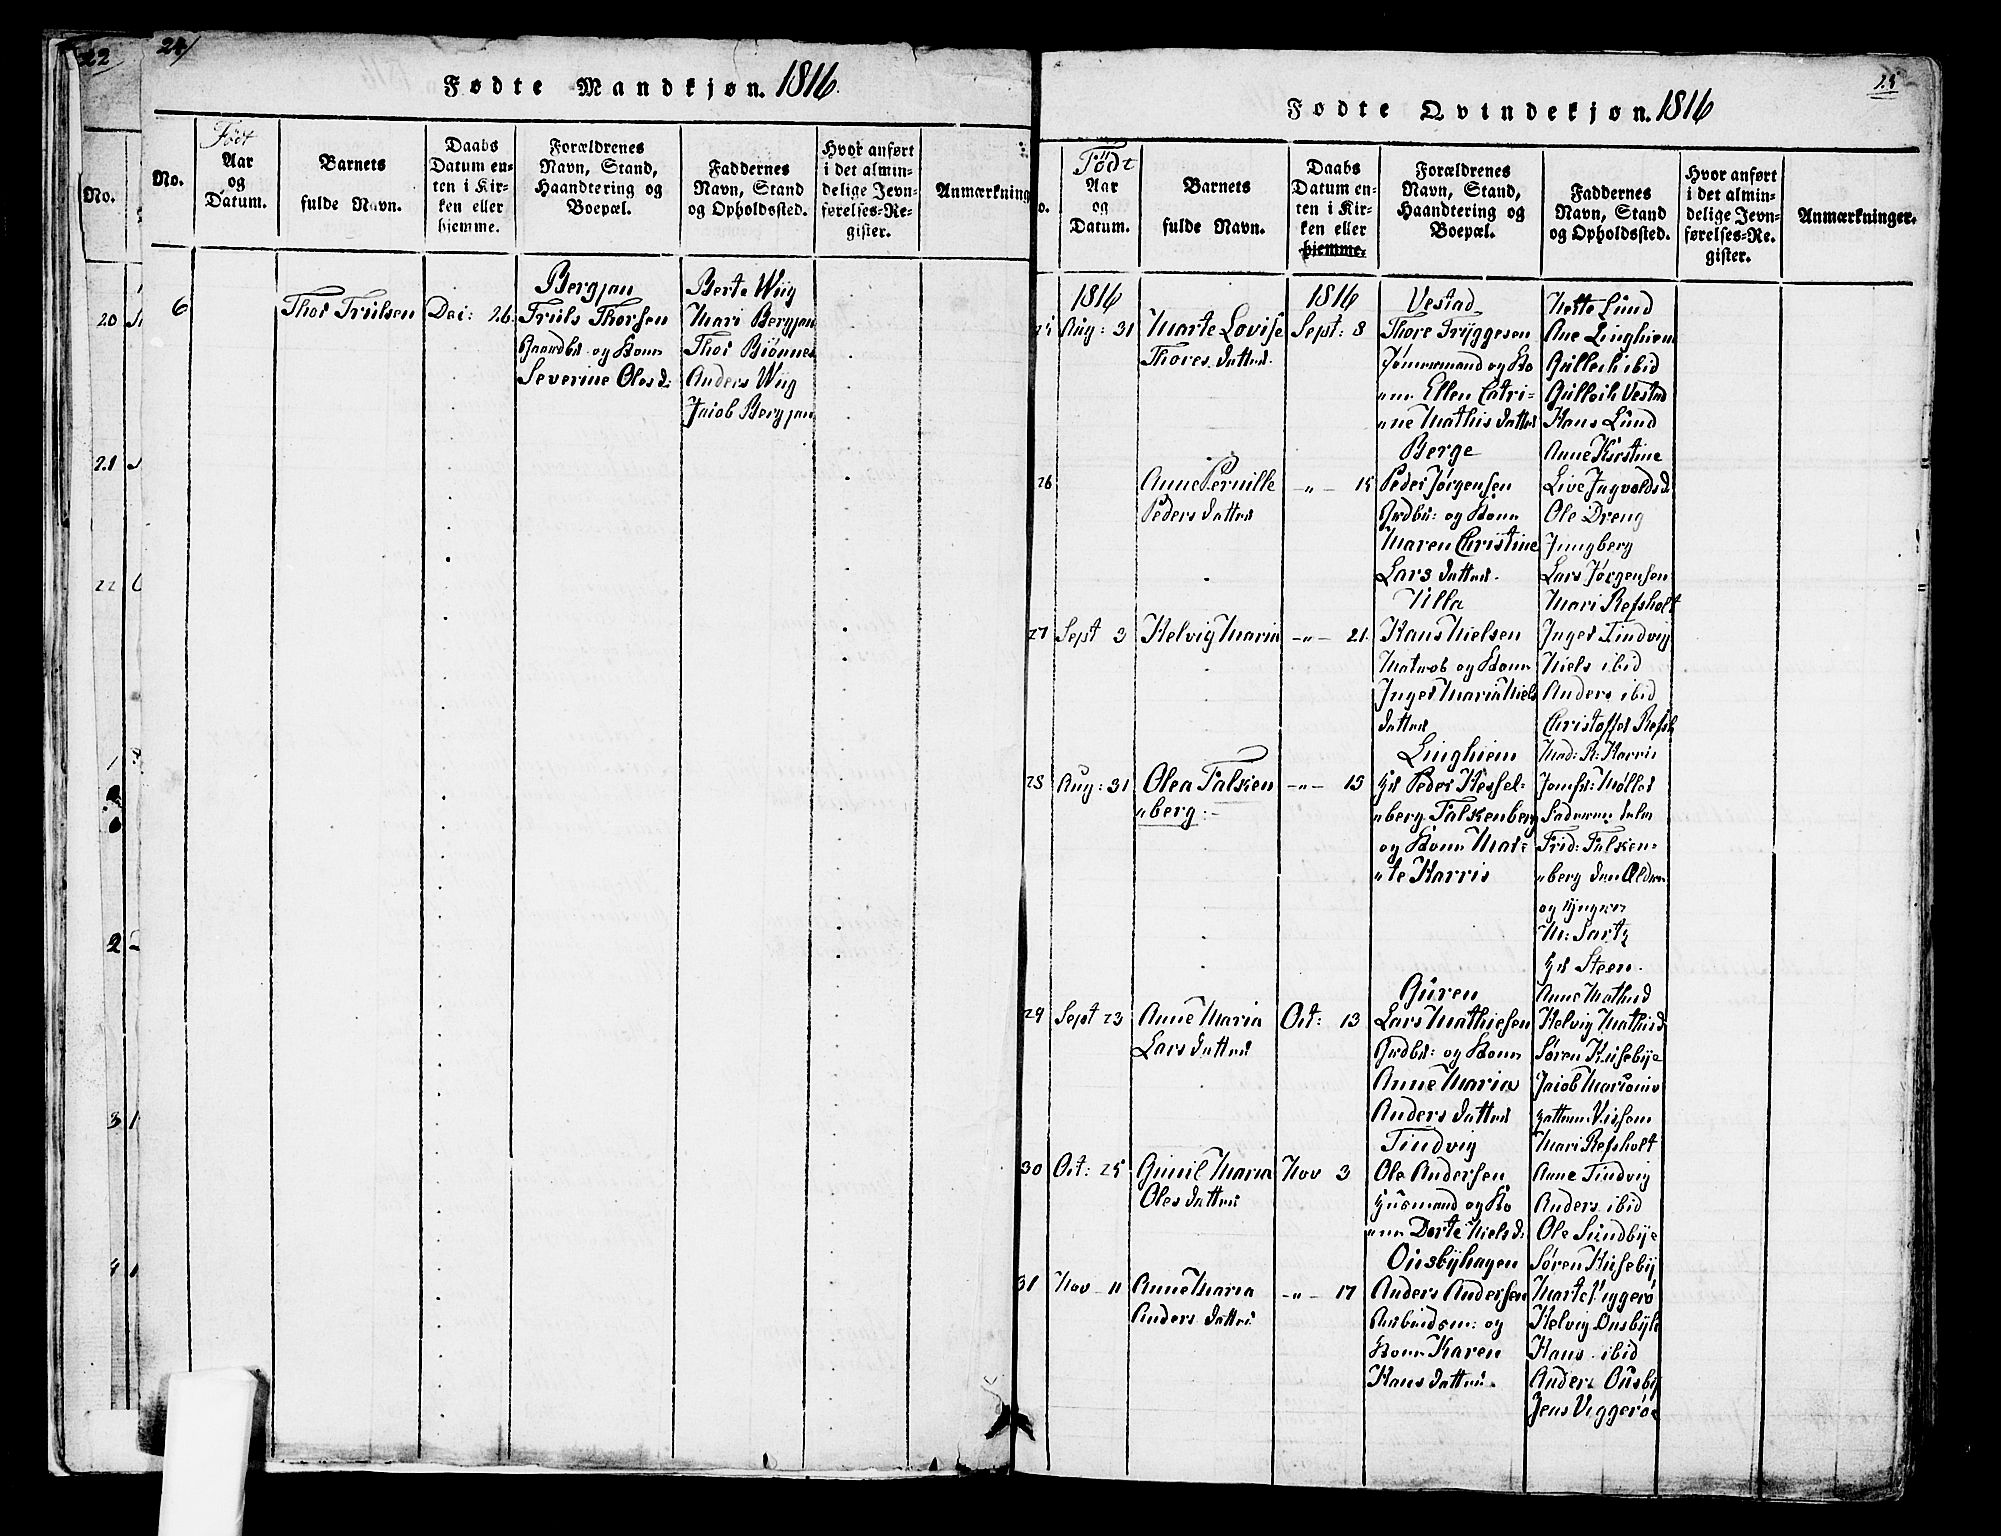 22
24
Fødte Mandkjøn. 1816.
No.
No.
Født
Aar
og
Datum.
Barnets
fulde Navn.
Daabs
Datum en-
ten i Kir-
ken eller
hjemme.
Forældrenes
Navn, Stand,
Haandtering og
Boepæl.
Faddernes
Navn, Stand
og Opholdssted.
Hvor anført
i det almin-
delige Jevn-
førelses-Re-
gister.
Anmærkning
20
21
22
1
2
3
4
6
Thor Trulsen
Dec: 26.
Bergjan
Truls Thorsen
Gaardbr og Kone
Severine Olesd:
Berte Wiig
Mari Bergjan
Thor Biønnes
Anders Wiig
Jacob Bergjan
25
Fødte Qvindekjøn. 1816
o.
Født
Aar
og
Datum.
Barnets
fulde Navn.
Daabs
Datum en-
ten i Kir-
ken eller
hjemme.
Forældrenes
Navn, Stand,
Haandtering og
Boepæl.
Faddernes
Navn, Stand
og Opholdssted.
Hvor anført
i det almin-
delige Jevn-
førelses-Re-
gister.
Anmærkninger.
1816
25 Aug: 31
Marte Lovise
Thores datter.
1816
Sept: 8
Vestad
Thore Tryggesen
Tømmermand og Ko
"ne Ellen Catri-
"ne Mathis datter
Mette Lund
Ane Linghiem
Gulleik ibid
Gulleik Vestad
Hans Lund
26
Anne Pernille
Peders datter
-"- 15
Berge
Peder Jørgensen
Grdbr: og Kone
Maren Christine
Lars datter.
Anne Kirstine
Live Ingvoldsd
Ole Dreng
Jungberg
Lars Jørgensen
27 Sept 3
Helvig Maria
-"- 21.
Ulla
Hans Nielsen
Matros og Kone
Inger Maria Niels
datter
Mari Refsholt
Inger Tindvig
Niels ibid
Anders ibid
Christoffer Refsh
28 Aug: 31
Olea Falken
"berg:-
-"- 15
Linghiem
Hr Peder Hessel-
"berg Falkenberg
og Kone Mar-
"te Harris
Mad: R: Harris
Jomfr: Møller
Frid: Falken-
"berg den Ældre
og Yngre
M: Sartz
Hr Steen.
29 Sept 23
Anne Maria
Lars datter
Oct: 13
Buren
Lars Mathiesen
Grdbr: og Kone
Anne Maria
Anders datter
Anne Mathisd
Helvig Mathisd
Søren Husebye
30 Oct: 25
Gunil Maria
Oles datter
Nov 3
Tindvig
Ole Andersen
Husmand og Ko
"ne Dorte Nielsd:
Mari Refsholt
Anne Tindvig
Anders ibid
Ole Sundbye
31 Nov 11
Anne Maria
Anders datter
-"- 17
Ounsbyhagen
Anders Andersen
Arbeidsm: og
Kone Karen
Hans datter.
Søren Huseby
Marte Viggerø
Helvig Ounsbyh
Hans ibid
Anders Ounsby
Jens Viggerøe